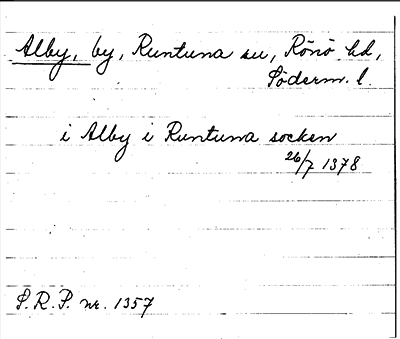 Alby, by, Runtuna sn, Rönö hd,
Söderm. l.
i Alby i Runtuna socken
26/7 1378
S.R.P. nr. 1357